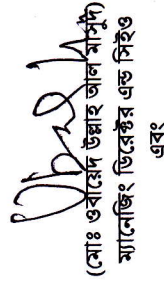 (মোঃ ওবায়েদ উল্লাহ আল মাসুদ)
ম্যানেজিং ডিরেক্টর এন্ড সিইও
এবং